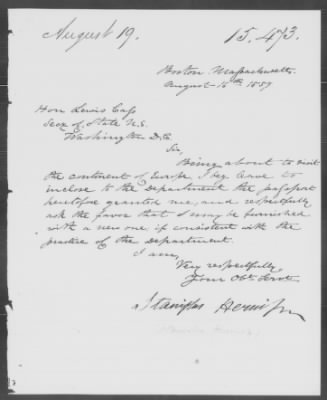 August 19.
15.473.
Boston. Massachusetts.
August 15th 1857
Hon Lewis Cass
Secy of State U.S.
Washington D.C.
Sir,
Being about to visit
the continent of Europe, I beg leave to
inclose to the Department the passport
heretofore granted me, and respectfully
ask the favor that I may be furnished
with a new one if consistent with the
practice of the Department.
I am,
Very respectfully
Your Obt. Servt.
Stanislas Hernisz